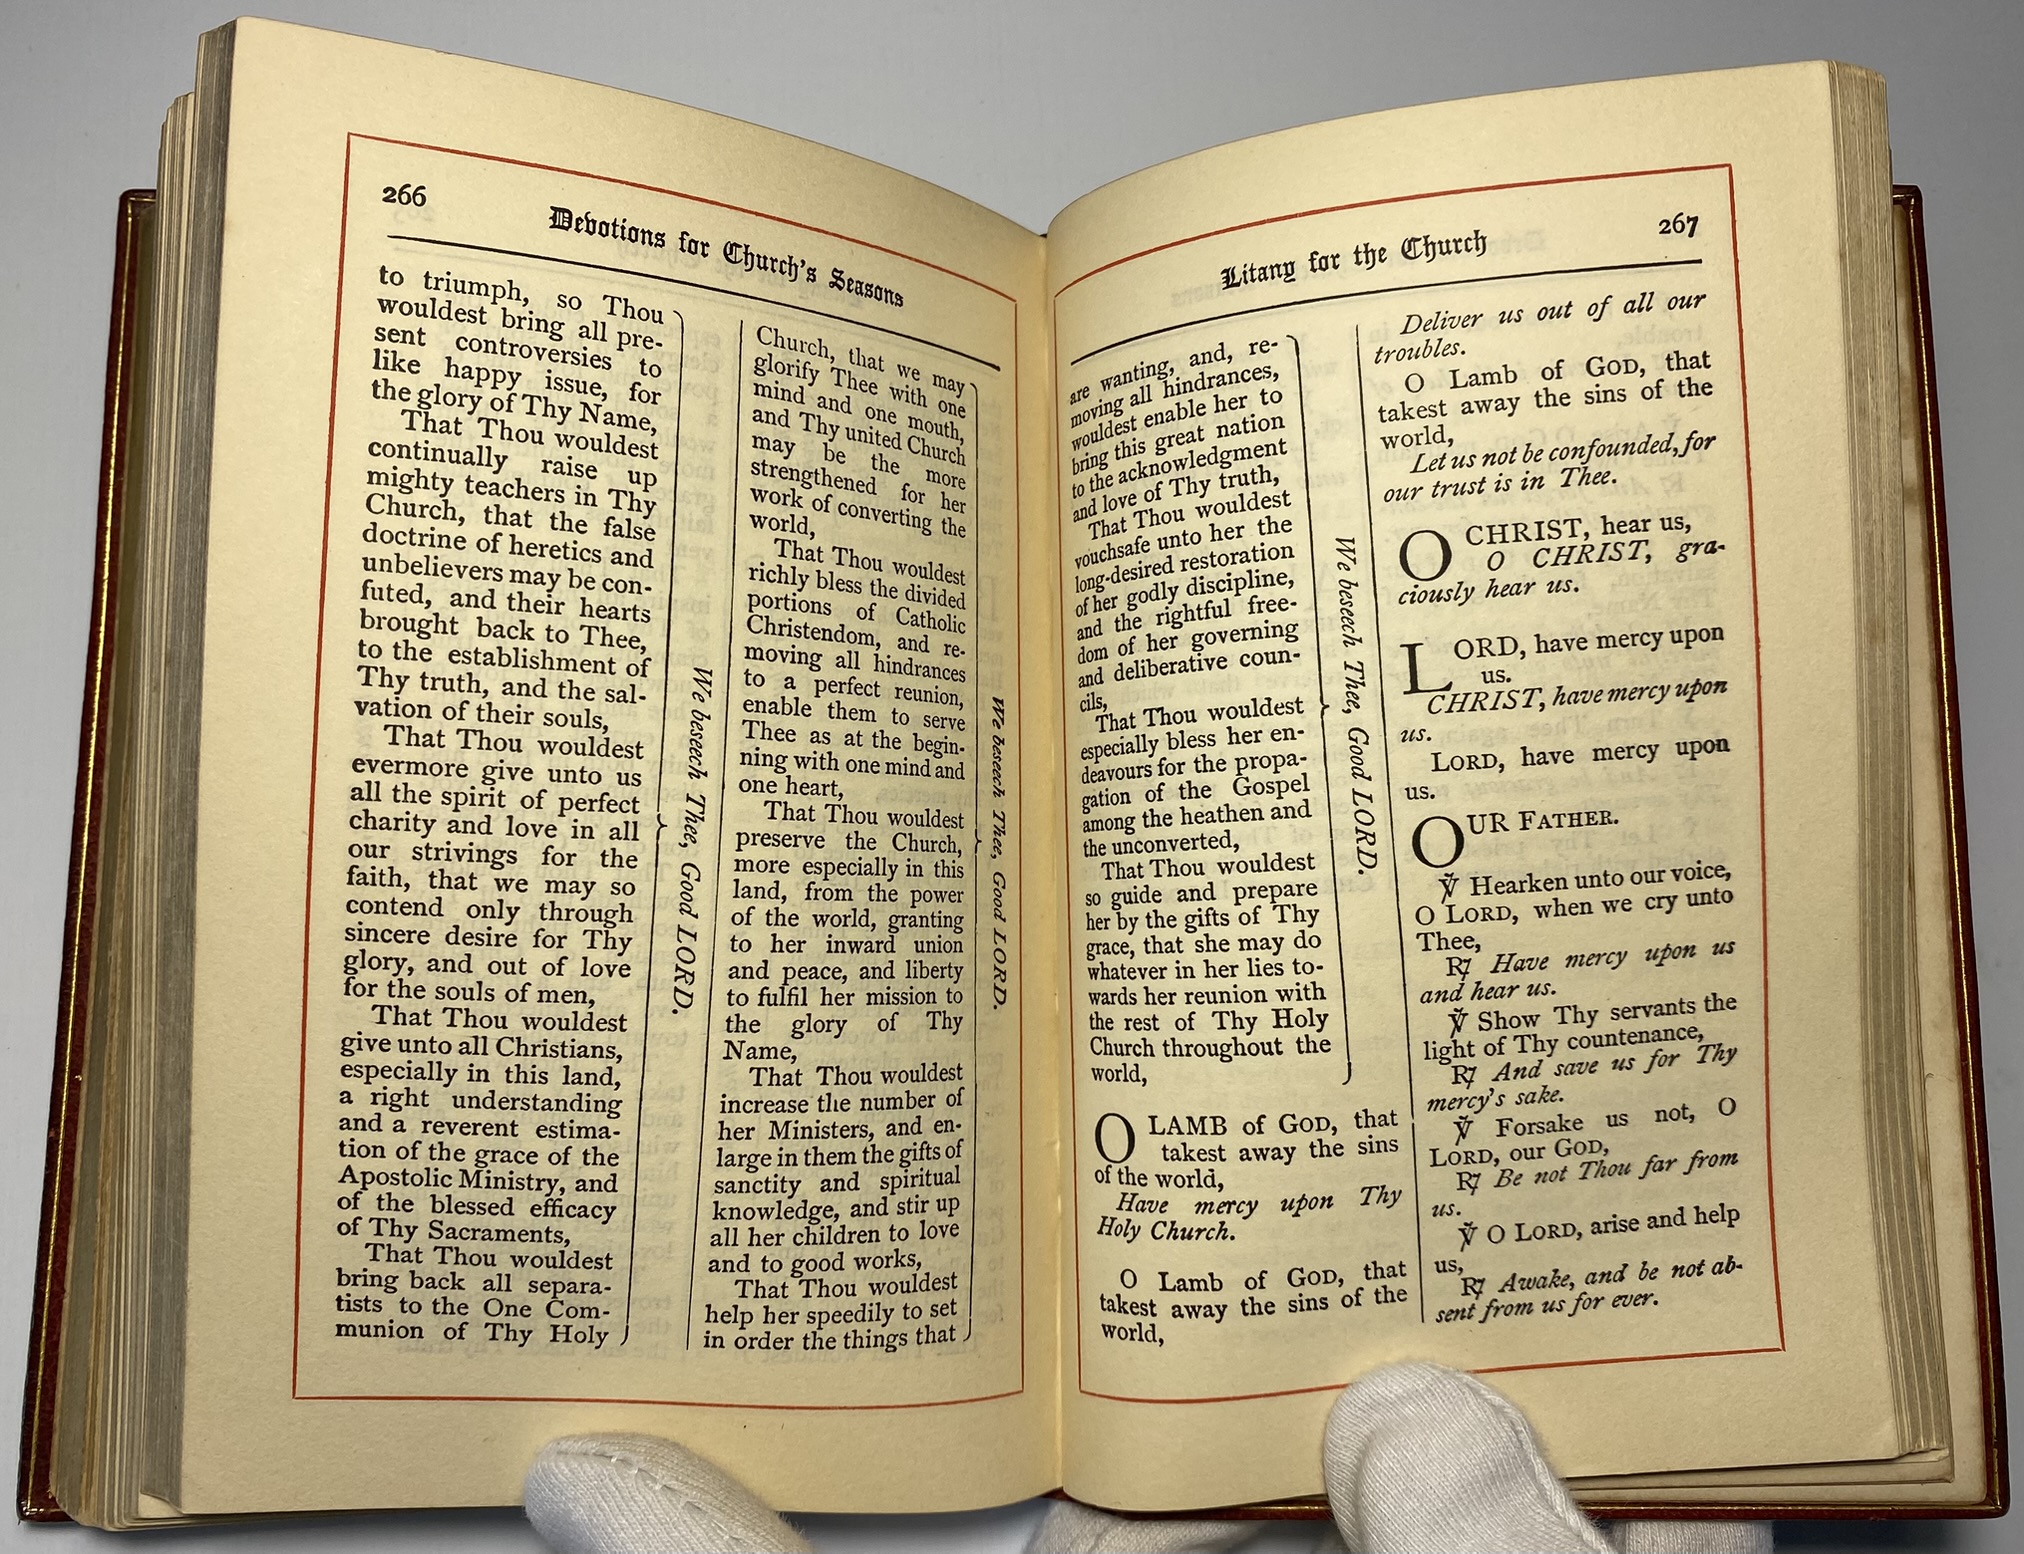 266
Devotions for Church's Seasons
to triumph, so Thou
wouldest bring all pre-
sent controversies to
like happy issue, for
the glory of Thy Name,
That Thou wouldest
continually raise up
mighty teachers in Thy
Church, that the false
doctrine of heretics and
unbelievers may be con-
futed, and their hearts
brought back to Thee,
to the establishment of
Thy truth, and the sal-
vation of their souls,
That Thou wouldest
evermore give unto us
all the spirit of perfect
charity and love in all
our strivings for the
faith, that we may so
contend only through
sincere desire for Thy
glory, and out of love
for the souls of men,
That Thou wouldest
give unto all Christians,
especially in this land,
a right understanding
and a reverent estima-
tion of the grace of the
Apostolic Ministry, and
of the blessed efficacy
of Thy Sacraments,
That Thou wouldest
bring back all separa-
tists to the One Com-
munion of Thy Holy
We beseech Thee, Good LORD.
Church, that we may
glorify Thee with one
mind and one mouth,
and Thy united Church
may be the more
strengthened for her
work of converting the
world,
That Thou wouldest
richly bless the divided
portions of Catholic
Christendom, and re-
moving all hindrances
to a perfect reunion,
enable them to serve
Thee as at the begin-
ning with one mind and
one heart,
That Thou wouldest
preserve the Church,
more especially in this
land, from the power
of the world, granting
to her inward union
and peace, and liberty
to fulfil her mission to
the glory of Thy
Name,
That Thou wouldest
increase the number of
her Ministers, and en-
large in them the gifts of
sanctity and spiritual
knowledge, and stir up
all her children to love
and to good works,
That Thou wouldest
help her speedily to set
in order the things that
We beseech Thee, Good LORD.
Litany for the Church
267
are wanting, and, re-
moving all hindrances,
wouldest enable her to
bring this great nation
to the acknowledgment
and love of Thy truth,
That Thou wouldest
vouchsafe unto her the
long-desired restoration
of her godly discipline,
and the rightful free-
dom of her governing
and deliberative coun-
cils,
That Thou wouldest
especially bless her en-
deavours for the propa-
gation of the Gospel
among the heathen and
the unconverted,
That Thou wouldest
so guide and prepare
her by the gifts of Thy
grace, that she may do
whatever in her lies to-
wards her reunion with
the rest of Thy Holy
Church throughout the
world,
We beseech Thee, Good LORD.
O LAMB of GOD, that
takest away the sins
of the world,
Have mercy upon Thy
Holy Church.
O Lamb of GOD, that
takest away the sins of the
world,
Deliver us out of all our
troubles.
O Lamb of GOD, that
takest away the sins of the
world,
Let us not be confounded, for
our trust is in Thee.
O CHRIST, hear us,
O CHRIST, gra-
ciously hear us.
LORD, have mercy upon
us.
CHRIST, have mercy upon
us.
LORD, have mercy upon
us.
OUR FATHER.
℣ Hearken unto our voice,
O LORD, when we cry unto
Thee,
℟ Have mercy upon us
and hear us.
℣ Show Thy servants the
light of Thy countenance,
℟ And save us for Thy
mercy's sake.
℣ Forsake us not, O
LORD, our GOD,
℟ Be not Thou far from
us.
℣ O LORD, arise and help
us,
℟ Awake, and be not ab-
sent from us for ever.